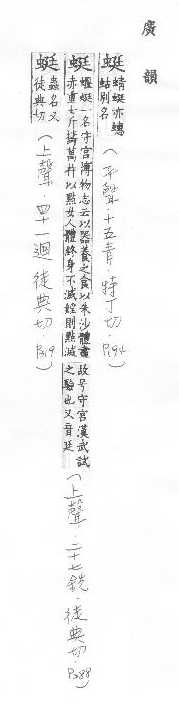 廣韻
蜓
蜻蜓亦蟪
蛄別名
(平聲.十五青.特丁切.P194)
蜓
蝘蜓一名守宮博物志云以器養之食以朱沙體盡
赤重七斤擣萬杵以點女人體終身不滅婬則點滅
故号守宮漢武試
之驗也又音廷
(上聲.二十七銑.徒典切.P288)
蜓
蟲名又
徒典切
(上聲.四十一迥.徒典切.P319)